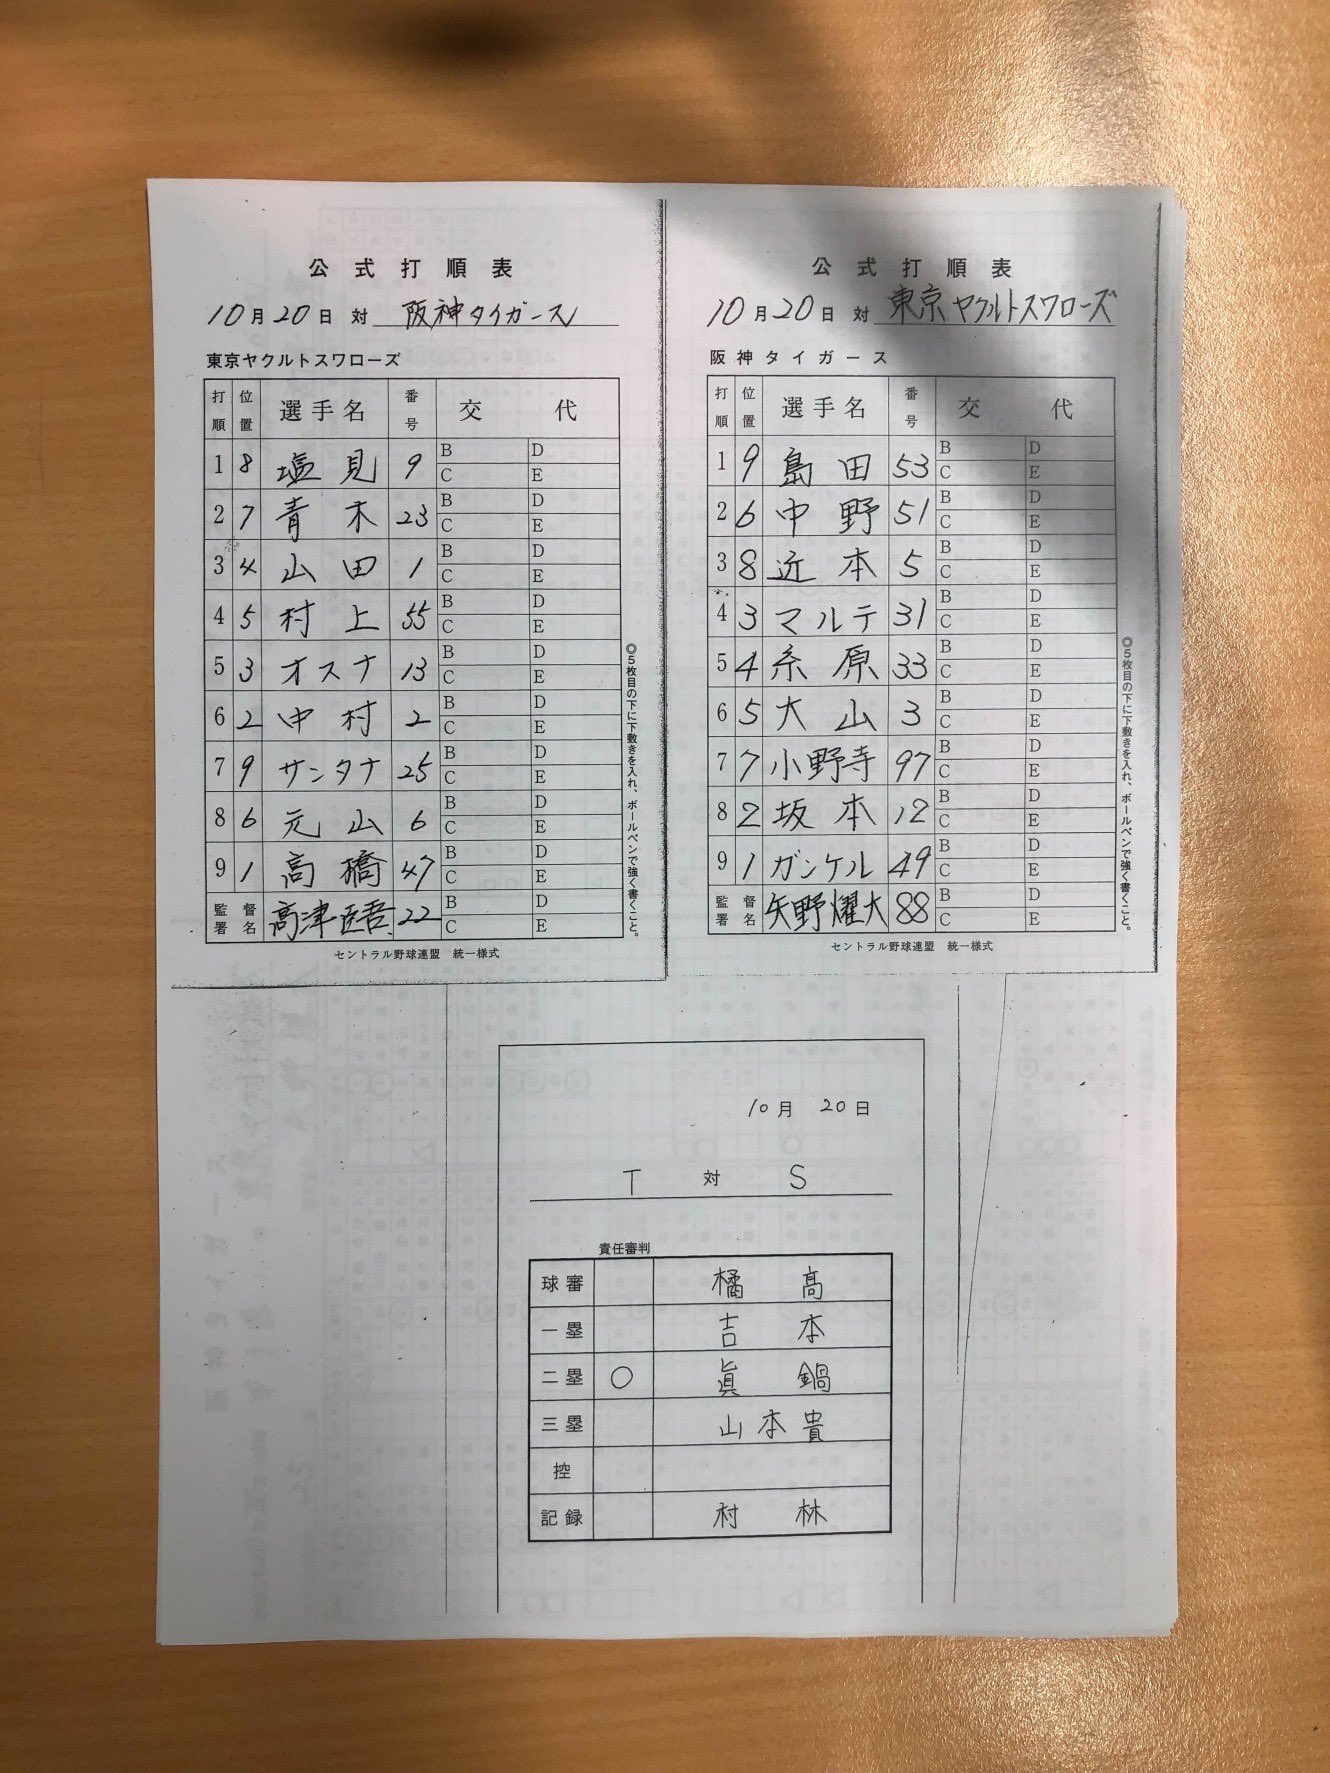 公式打順表
10月20日 対 阪神タイガース
東京ヤクルトスワローズ
打順 位置 選手名 番号 交代
1 8 塩見 9 B D C E
2 7 青木 23 B D C E
3 4 山田 1 B D C E
4 5 村上 55 B D C E
5 3 オスナ 13 B D C E
6 2 中村 2 B D C E
7 9 サンタナ 25 B D C E
8 6 元山 6 B D C E
9 1 高橋 47 B D C E
監督署名 高津臣吾 22 B D C E
◎5枚目の下に下敷きを入れ、ボールペンで強く書くこと。
セントラル野球連盟 統一様式
公式打順表
10月20日 対 東京ヤクルトスワローズ
阪神タイガース
打順 位置 選手名 番号 交代
1 9 島田 53 B D C E
2 6 中野 51 B D C E
3 8 近本 5 B D C E
4 3 マルテ 31 B D C E
5 4 糸原 33 B D C E
6 5 大山 3 B D C E
7 7 小野寺 97 B D C E
8 2 坂本 12 B D C E
9 1 ガンケル 49 B D C E
監督署名 矢野燿大 88 B D C E
◎5枚目の下に下敷きを入れ、ボールペンで強く書くこと。
セントラル野球連盟 統一様式
10月 20日
T 対 S
責任審判
球審 橘高
一塁 吉本
二塁 ○ 眞鍋
三塁 山本貴
控
記録 村林